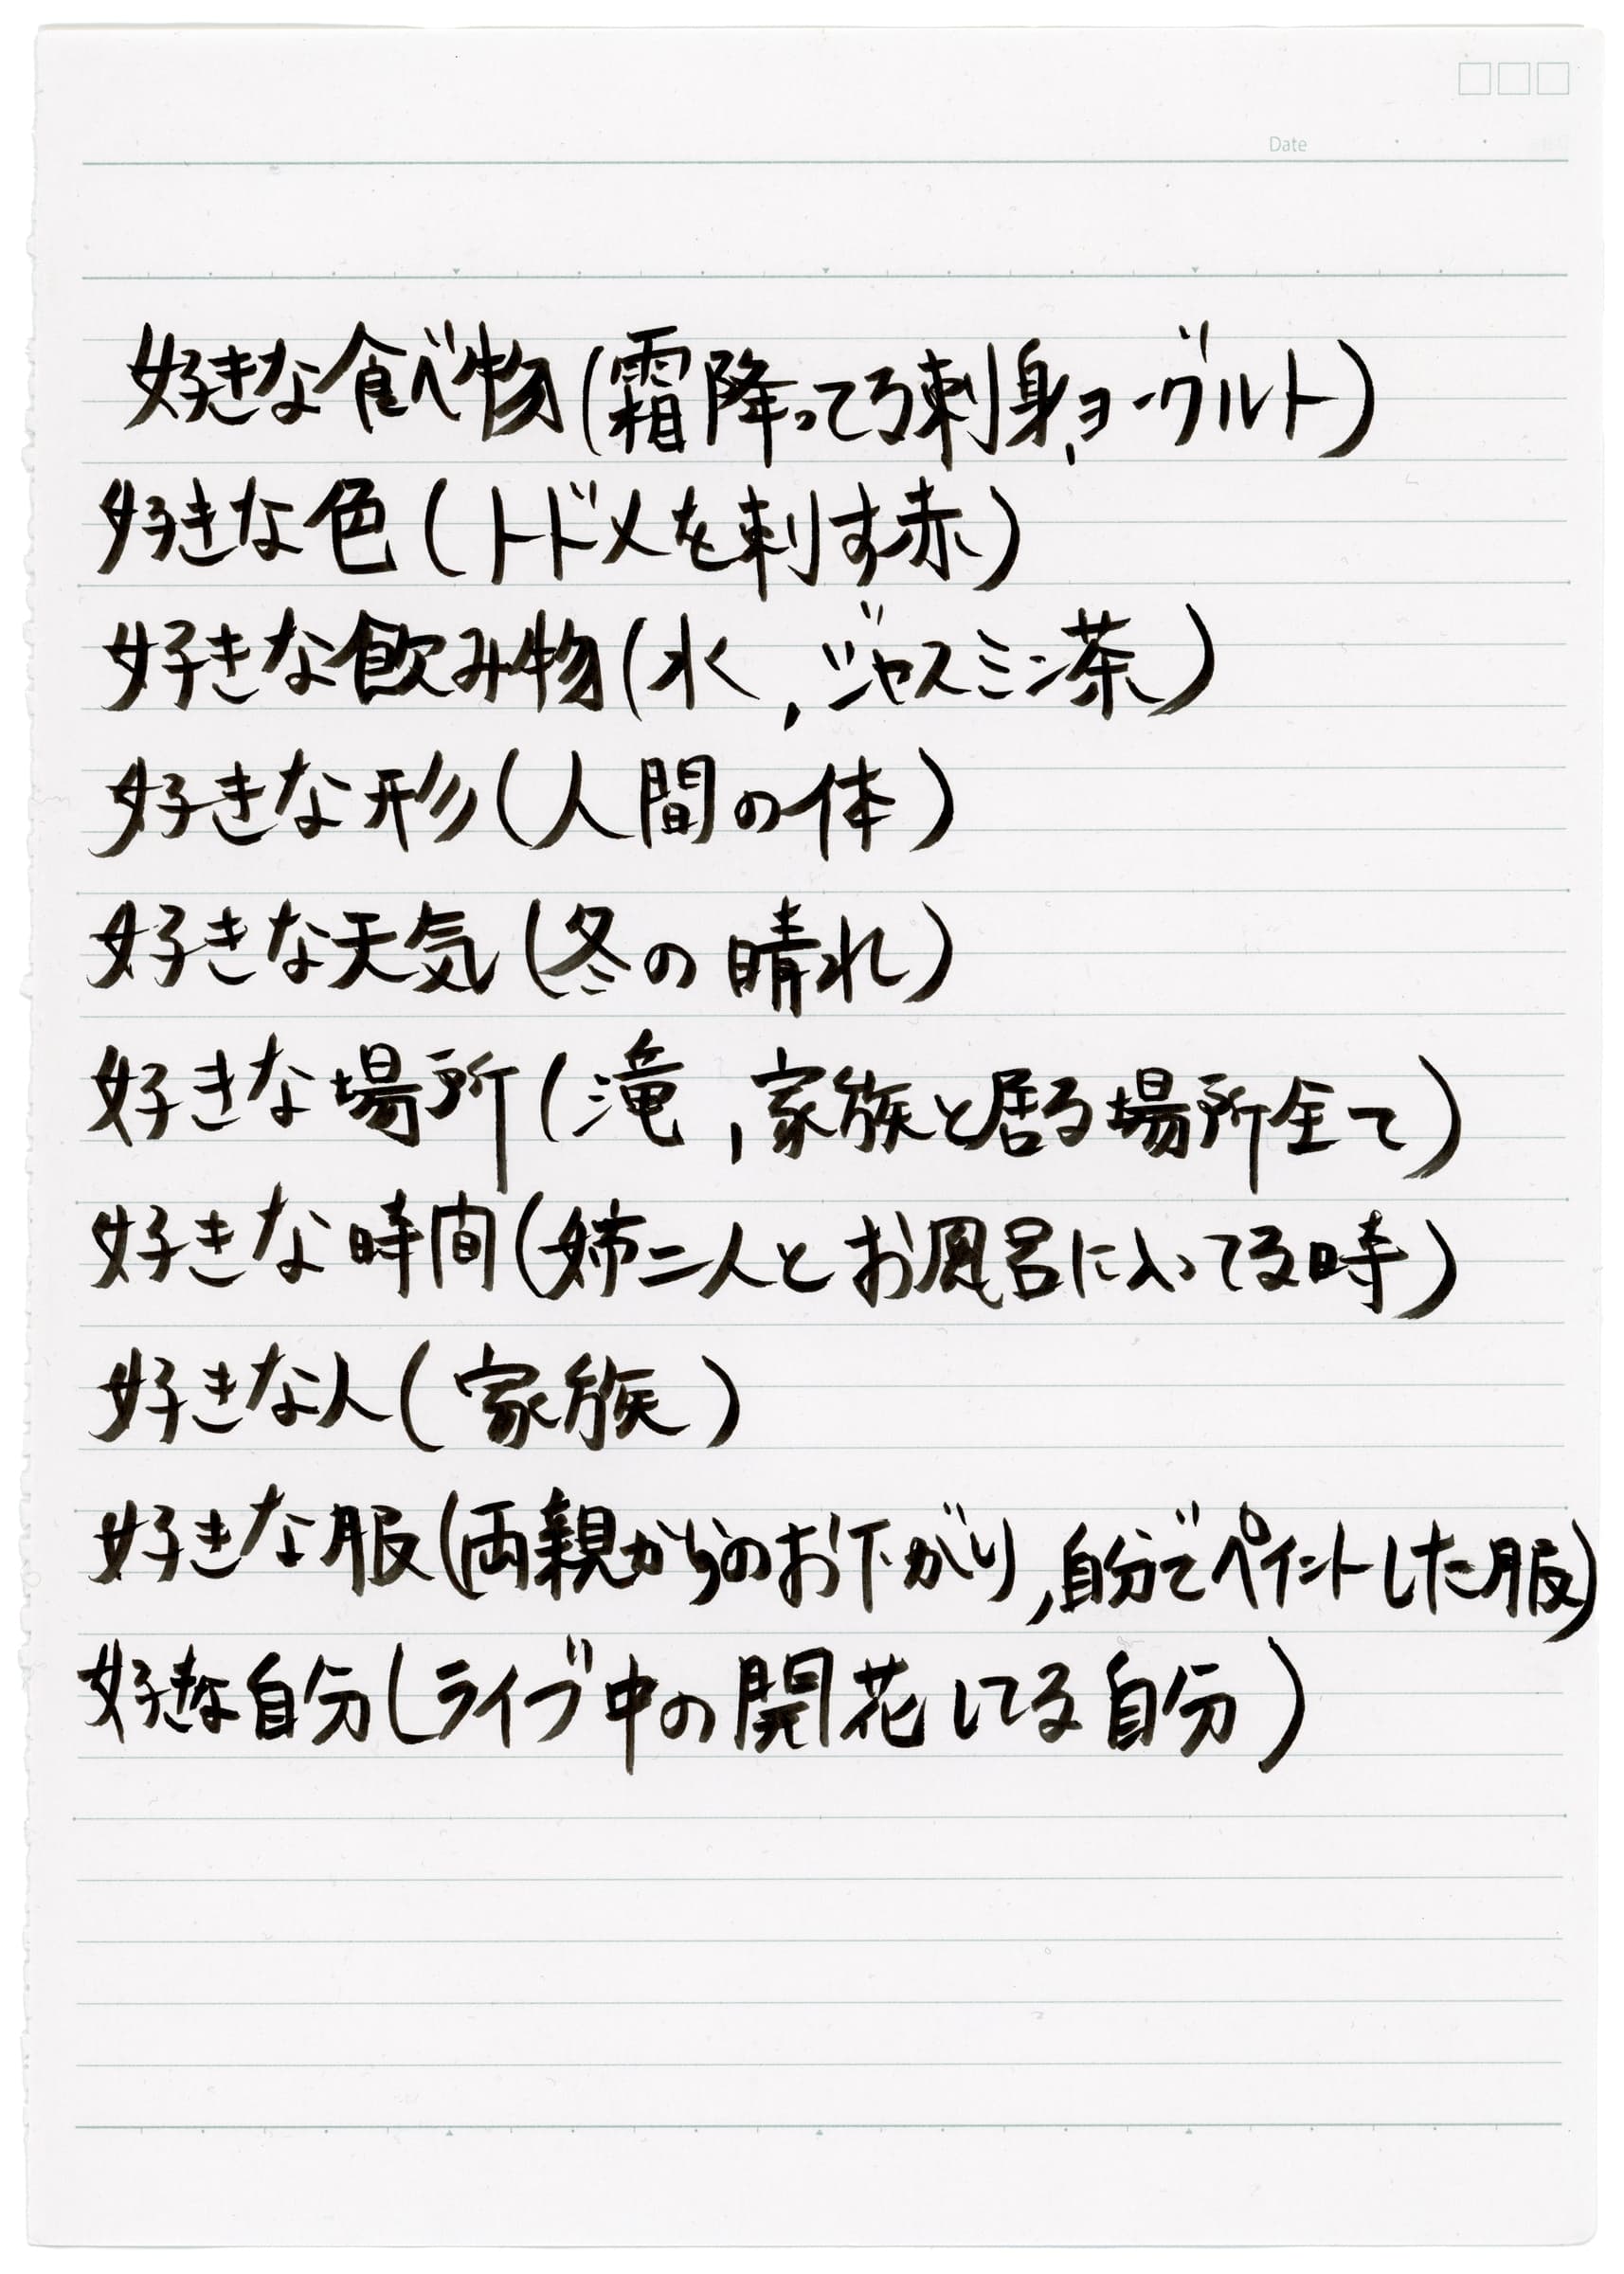 Date
好きな食べ物(霜降ってる刺身,ヨーグルト)
好きな色(トドメを刺す赤)
好きな飲み物(水,ジャスミン茶)
好きな形(人間の体)
好きな天気(冬の晴れ)
好きな場所(滝,家族と居る場所全て)
好きな時間(姉二人とお風呂に入ってる時)
好きな人(家族)
好きな服(両親からのお下がり,自分でペイントした服)
好きな自分(ライブ中の開花してる自分)